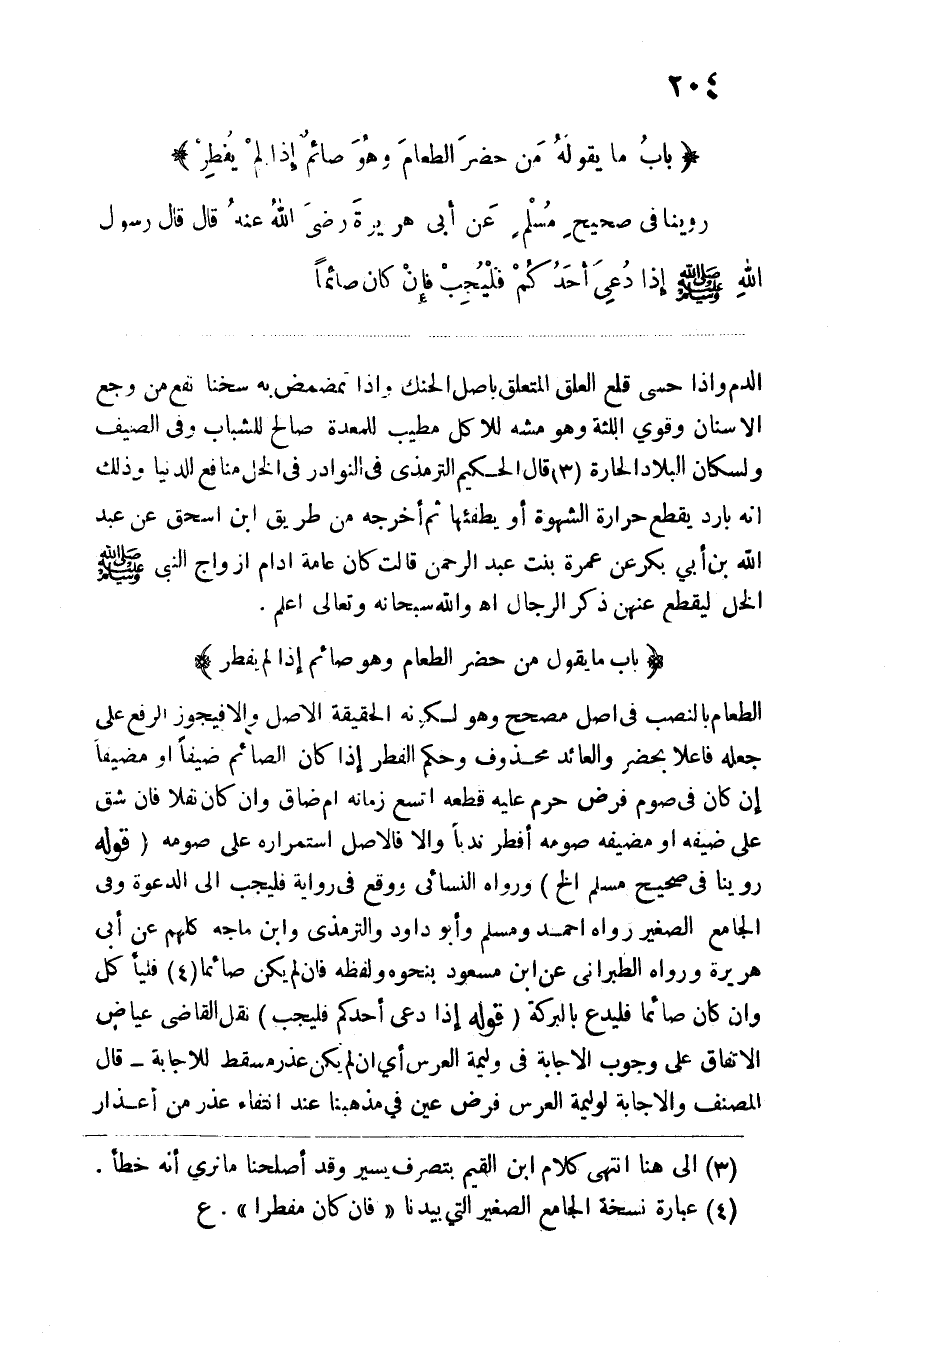 ٢٠٤
﴿ بابُ ما يقولَهُ مَن حضرَ الطعامَ وهُوَ صائمٌ إذا لمْ يُفطِرْ ﴾
روينا فى صحيحِ مُسْلمٍ عَن أبى هريرةَ رضىَ اللهُ عنهُ قال قال رسول
اللهِ ﷺ إذا دُعِىَ أحَدُكُمْ فَلْيُجِبْ فإنْ كان صائماً
الدم واذا حسى قلع العلق المتعلق باصل الحنك واذا تمضمض به سخنا نفع من وجع
الاسنان وقوي اللثة وهو مشه للاكل مطيب للمعدة صالح للشباب وفى الصيف
ولسكان البلاد الحارة (٣) قال الحكيم الترمذى فى النوادر فى الخل منافع الدنيا وذلك
انه بارد يقطع حرارة الشهوة أو يطفئها ثم أخرجه من طريق ابن اسحق عن عبد
الله بن أبي بكر عن عمرة بنت عبد الرحمن قالت كان عامة ادام ازواج النبى ﷺ
الخل ليقطع عنهن ذكر الرجال اه والله سبحانه وتعالى اعلم .
﴿ باب ما يقول من حضر الطعام وهو صائم إذا لم يفطر ﴾
الطعام بالنصب فى اصل مصحح وهو لكونه الحقيقة الاصل والا فيجوز الرفع على
جعله فاعلا بحضر والعائد محذوف وحكم الفطر إذا كان الصائم ضيفاً او مضيفاً
إن كان فى صوم فرض حرم عليه قطعه اتسع زمانه ام ضاق وان كان نفلا فان شق
على ضيفه او مضيفه صومه أفطر ندباً والا فالاصل استمراره على صومه ( قوله
روينا فى صحيح مسلم الخ ) ورواه النسائى ووقع فى رواية فليجب الى الدعوة وفى
الجامع الصغير رواه احمد ومسلم وأبو داود والترمذى وابن ماجه كلهم عن أبى
هريرة ورواه الطبرانى عن ابن مسعود بنحوه ولفظه فان لم يكن صائما (٤) فليأ كل
وان كان صائما فليدع بالبركة ( قوله إذا دعى أحدكم فليجب ) نقل القاضى عياض
الاتفاق على وجوب الاجابة فى وليمة العرس أي ان لم يكن عذر مسقط للاجابة ــ قال
المصنف والاجابة لوليمة العرس فرض عين في مذهبنا عند انتفاء عذر من أعذار
(٣) الى هنا انتهى كلام ابن القيم بتصرف يسير وقد أصلحنا ما نري أنه خطأ .
(٤) عبارة نسخة الجامع الصغير التي بيدنا « فان كان مفطرا » . ع